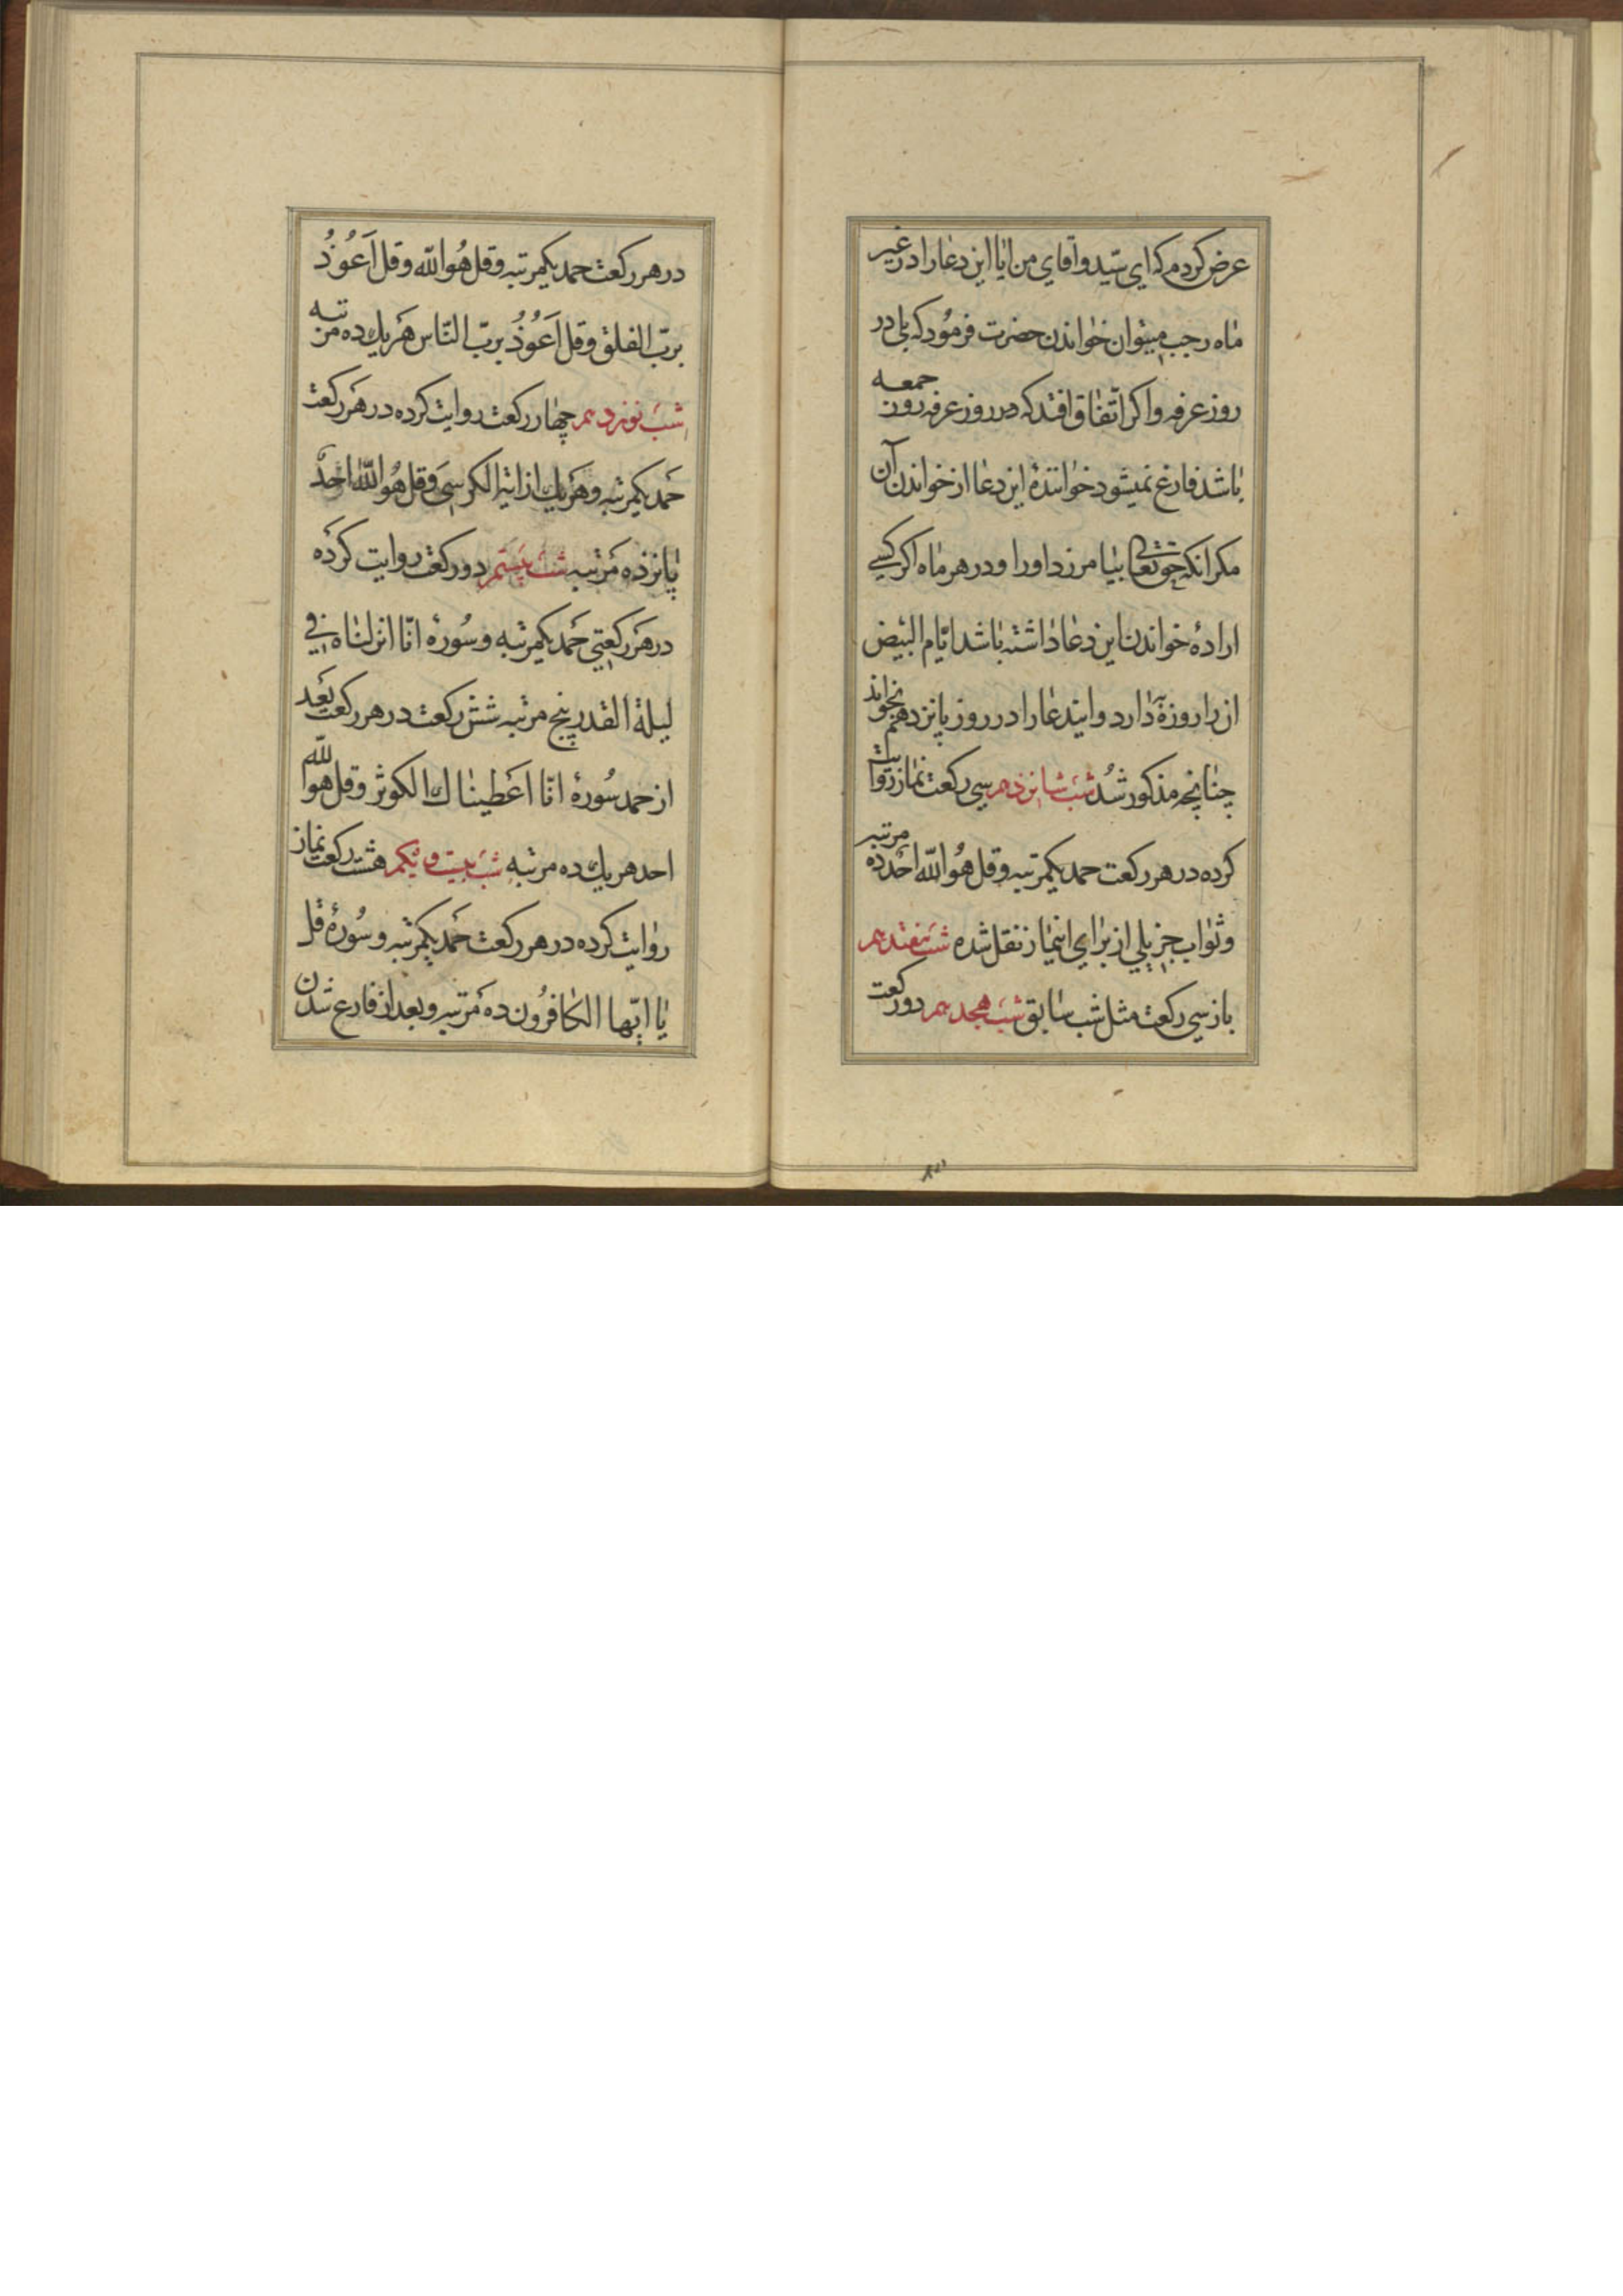 عرض کردم که ای سیّد و آقای من ایا این دعا را در غیر
ماه رجب میتوان خواندن حضرت فرمود که بلی در
روز عرفه و اکر اتّفاق افتد که در روز عرفه روز جمعه
باشد فارغ نمیشود خوانندهٔ این دعا از خواندن آن
مکر انکه حق تعالی بیامرزد او را و در هر ماه اکر کسی
ارادهٔ خواندن این دعا داشته باشد ایّام البیض
از را روزه دارد و ایندعا را در روز پانزدهم بخواند
چنانچه مذکور شُد شب شانزدهم سی رکعت نماز روایت
کرده در هر رکعت حمد یکمرتبه و قل هُو اللّه احد ده مرتبه
و ثواب جزیلی از برای اینماز نقل شده شب هفتدهم
باز سی رکعت مثل شب سابق شب هجدهم دو رکعت
در هر رکعت حمد یکمرتبه و قل هُو اللّه و قل اَعُوذُ
بربّ الفلق و قل اَعُوذُ بربّ النّاس هَر یك ده مرتبه
شب نوزدهم چهار رکعت روایت کرده در هَر رکعت
حَمد یکمرتبه و هَر یك از ایة الکرسی وَ قل هُو اللّه احدٌ
پانزده مَرتبه شب بیستم دو رکعت روایت کرده
در هَر رکعتی حَمد یکمرتبه و سُورهٔ انّا انزلناه فی
لیلة القدر پنج مرتبه شش رکعت در هر رکعت بَعد
از حمد سُورهٔ انّا اَعطیناك الکوثر و قل هو اللّه
احد هر یك ده مرتبه شب بیست و یکم هشت رکعت نماز
روایت کرده در هر رکعت حَمد یکمرتبه و سُورهٔ قل
یا ایّها الکافرُون ده مَرتبه و بعد از فارغ شدن